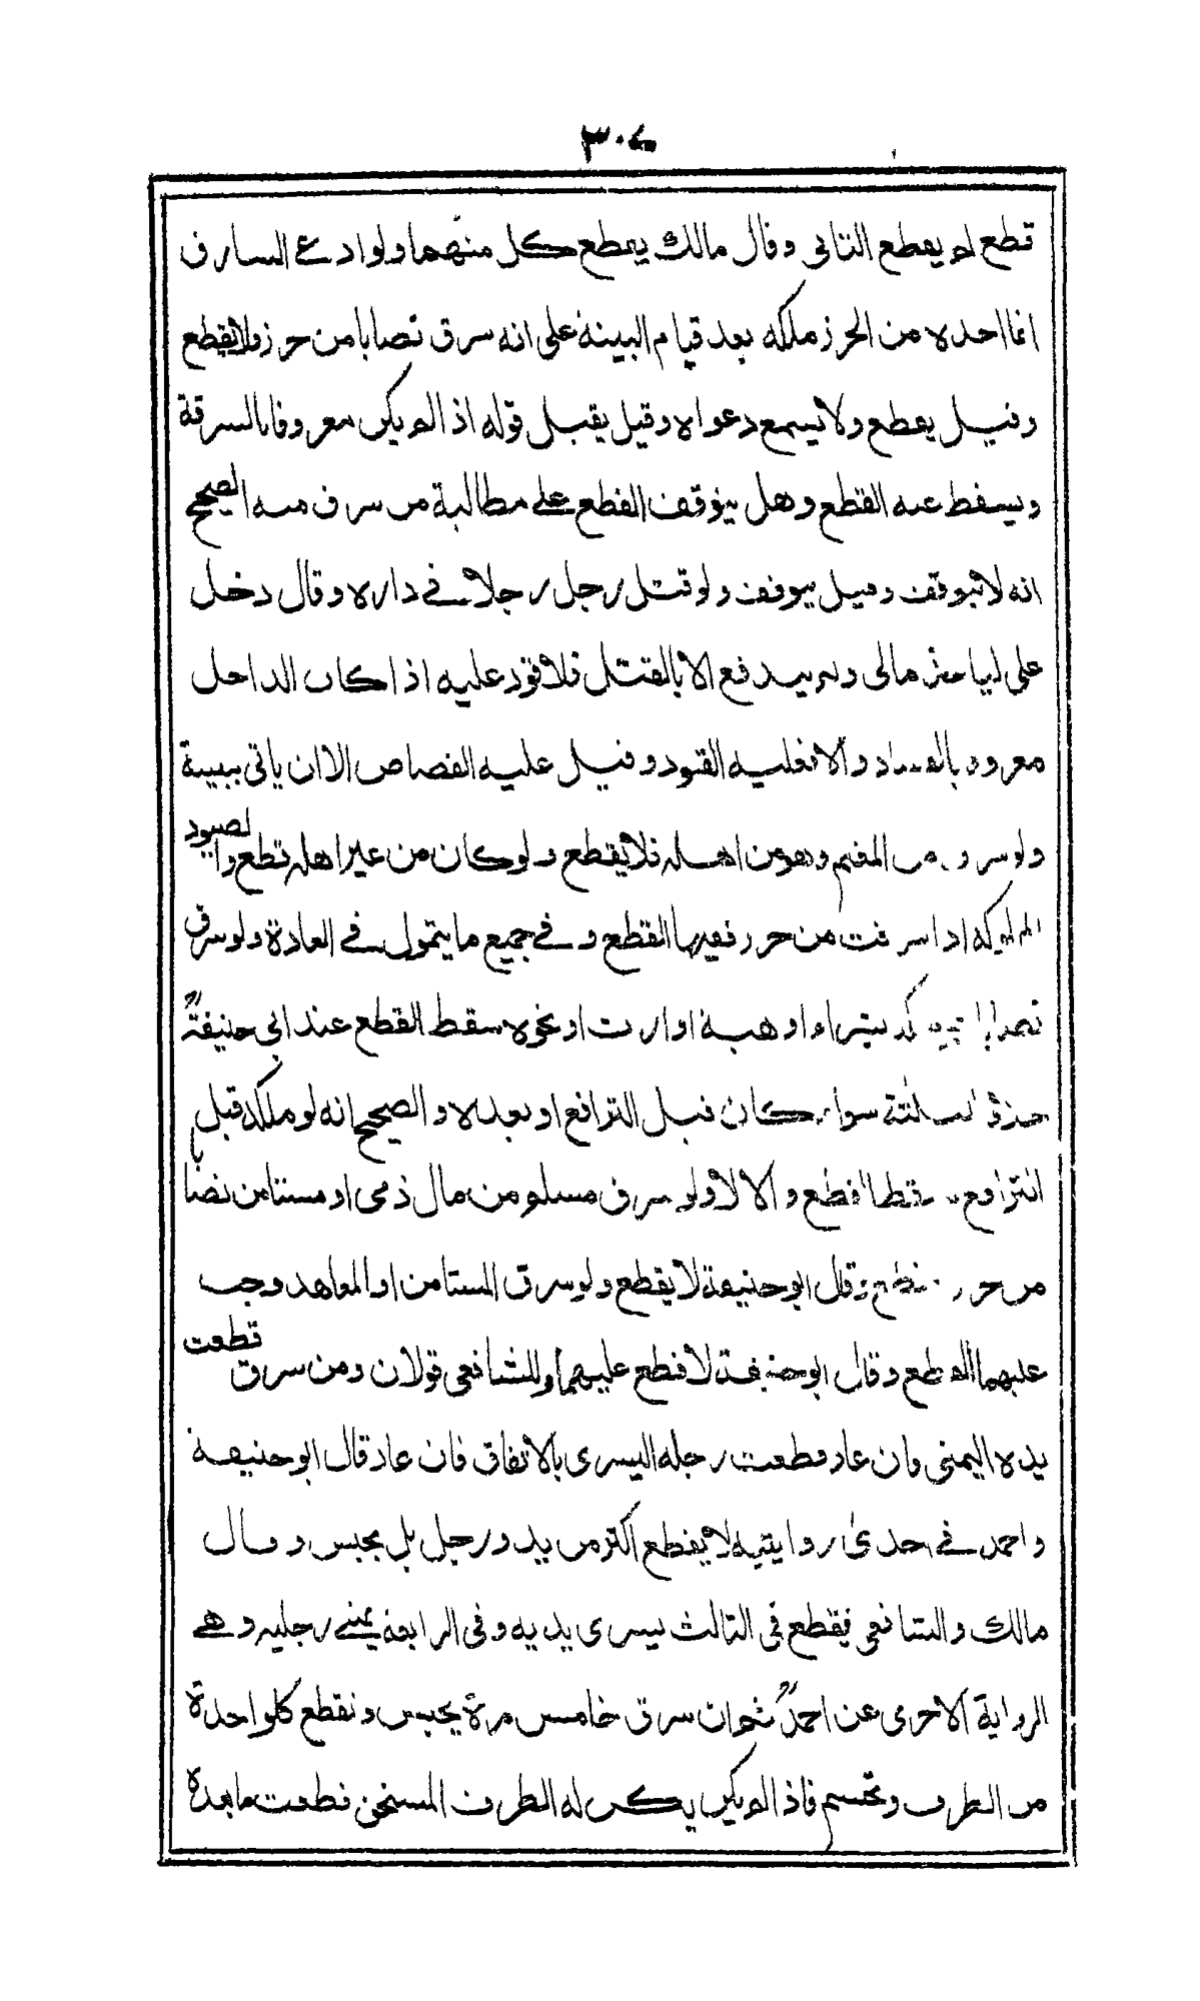 ٣٠٧
قطع لم يقطع الثاني وقال مالك يقطع كل منهما ولو ادعى السارق
انما اخذه من الحرز ملكه بعد قيام البينة على انه سرق نصابا من حرز ولا يقطع
وقيل يقطع ولا يسمع دعواه وقيل يقبل قوله اذا لم يكن معروفا بالسرقة
ويسقط عنه القطع وهل يتوقف القطع على مطالبة من سرق منه الصحيح
انه لا يتوقف وقيل يتوقف ولو قتل رجل رجلا في داره وقال دخل
على لياخذ مالى ولم يندفع الا بالقتل فلا قود عليه اذا كان الداخل
معروف بالفساد والا فعليه القود وقيل عليه القصاص الا ان ياتى ببينة
ولو سرق من المغنم وهو من اهله فلا يقطع ولو كان من غير اهله قطع والصيود
المملوكة اذا سرقت من حرز ففيها القطع وفي جميع ما يتمول في العادة ولو سرق
نصابا ثم ملكه بشراء او هبة او ارث او نحوه سقط القطع عند ابى حنيفة
خلافا للثلثة سواء كان قبل الترافع او بعده والصحيح انه لو ملكه قبل
الترافع سقط القطع والا لا ولو سرق مسلم من مال ذمى او مستامن نصابا
من حرز قطع وقال ابو حنيفة لا يقطع ولو سرق المستامن او المعاهد وجب
عليهما القطع وقال ابو حنيفة لا قطع عليهما وللشافعى قولان ومن سرق قطعت
يده اليمنى وان عاد قطعت رجله اليسرى بالاتفاق فان عاد قال ابو حنيفة
واحمد في احدى روايتيه لا يقطع اكثر من يد ورجل بل يحبس وقال
مالك والشافعى فيقطع فى الثالث يسرى يديه وفى الرابعة يمنى رجليه وهي
الرواية الاخرى عن احمد ثم ان سرق خامس مرة يحبس ونقطع كل واحدة
من الطرف وتحسم فاذا لم يكن يكن له الطرف المستحق قطعت ما بعده